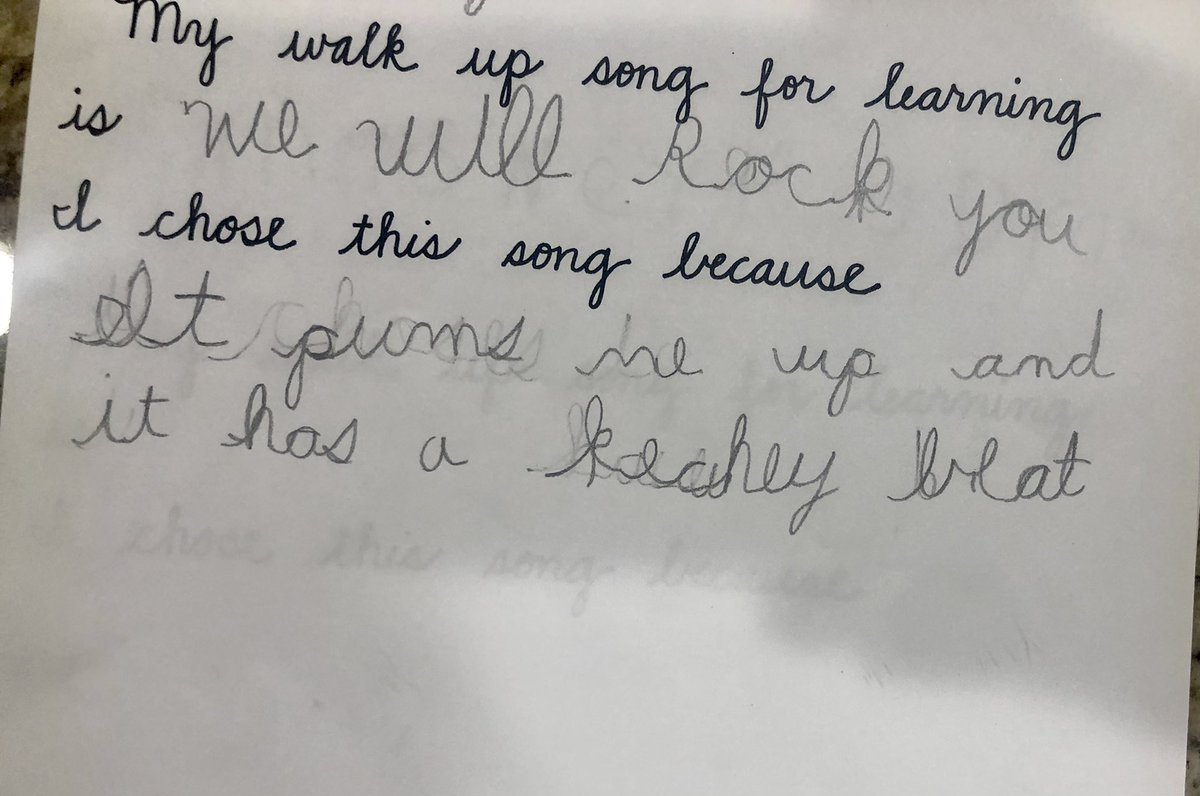 My walk up song for learning
is We Will Rock you
I chose this song because
It pums me up and
it has a keachey beat